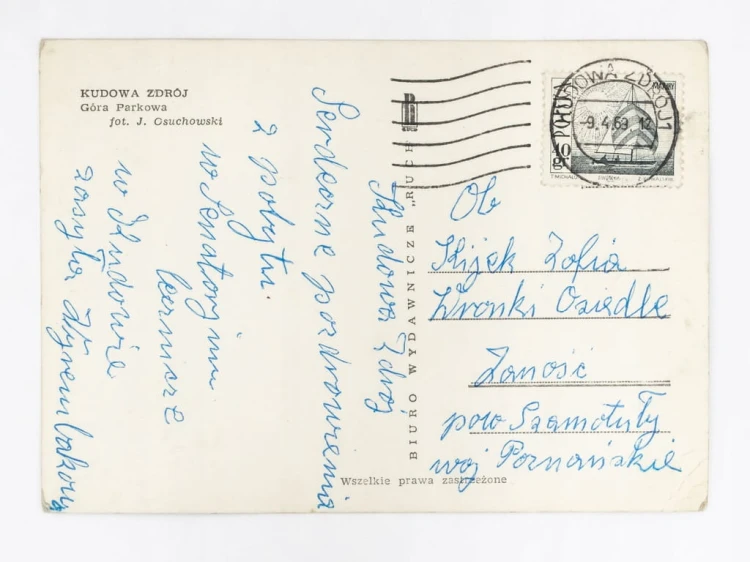 KUDOWA ZDRÓJ
Góra Parkowa
fot. J. Osuchowski
Kudowa Zdrój
Serdeczne pozdrowienia
z pobytu
w Sanatorjum
w Kudowie
zasyła
BIURO WYDAWNICZE „RUCH”
KUDOWA ZDRÓJ 1
-9.4.69.12
40 gr
Ob
Kijek Zofia
Wronki Osiedle
Zamość
pow Szamotuły
woj Poznańskie
Wszelkie prawa zastrzeżone